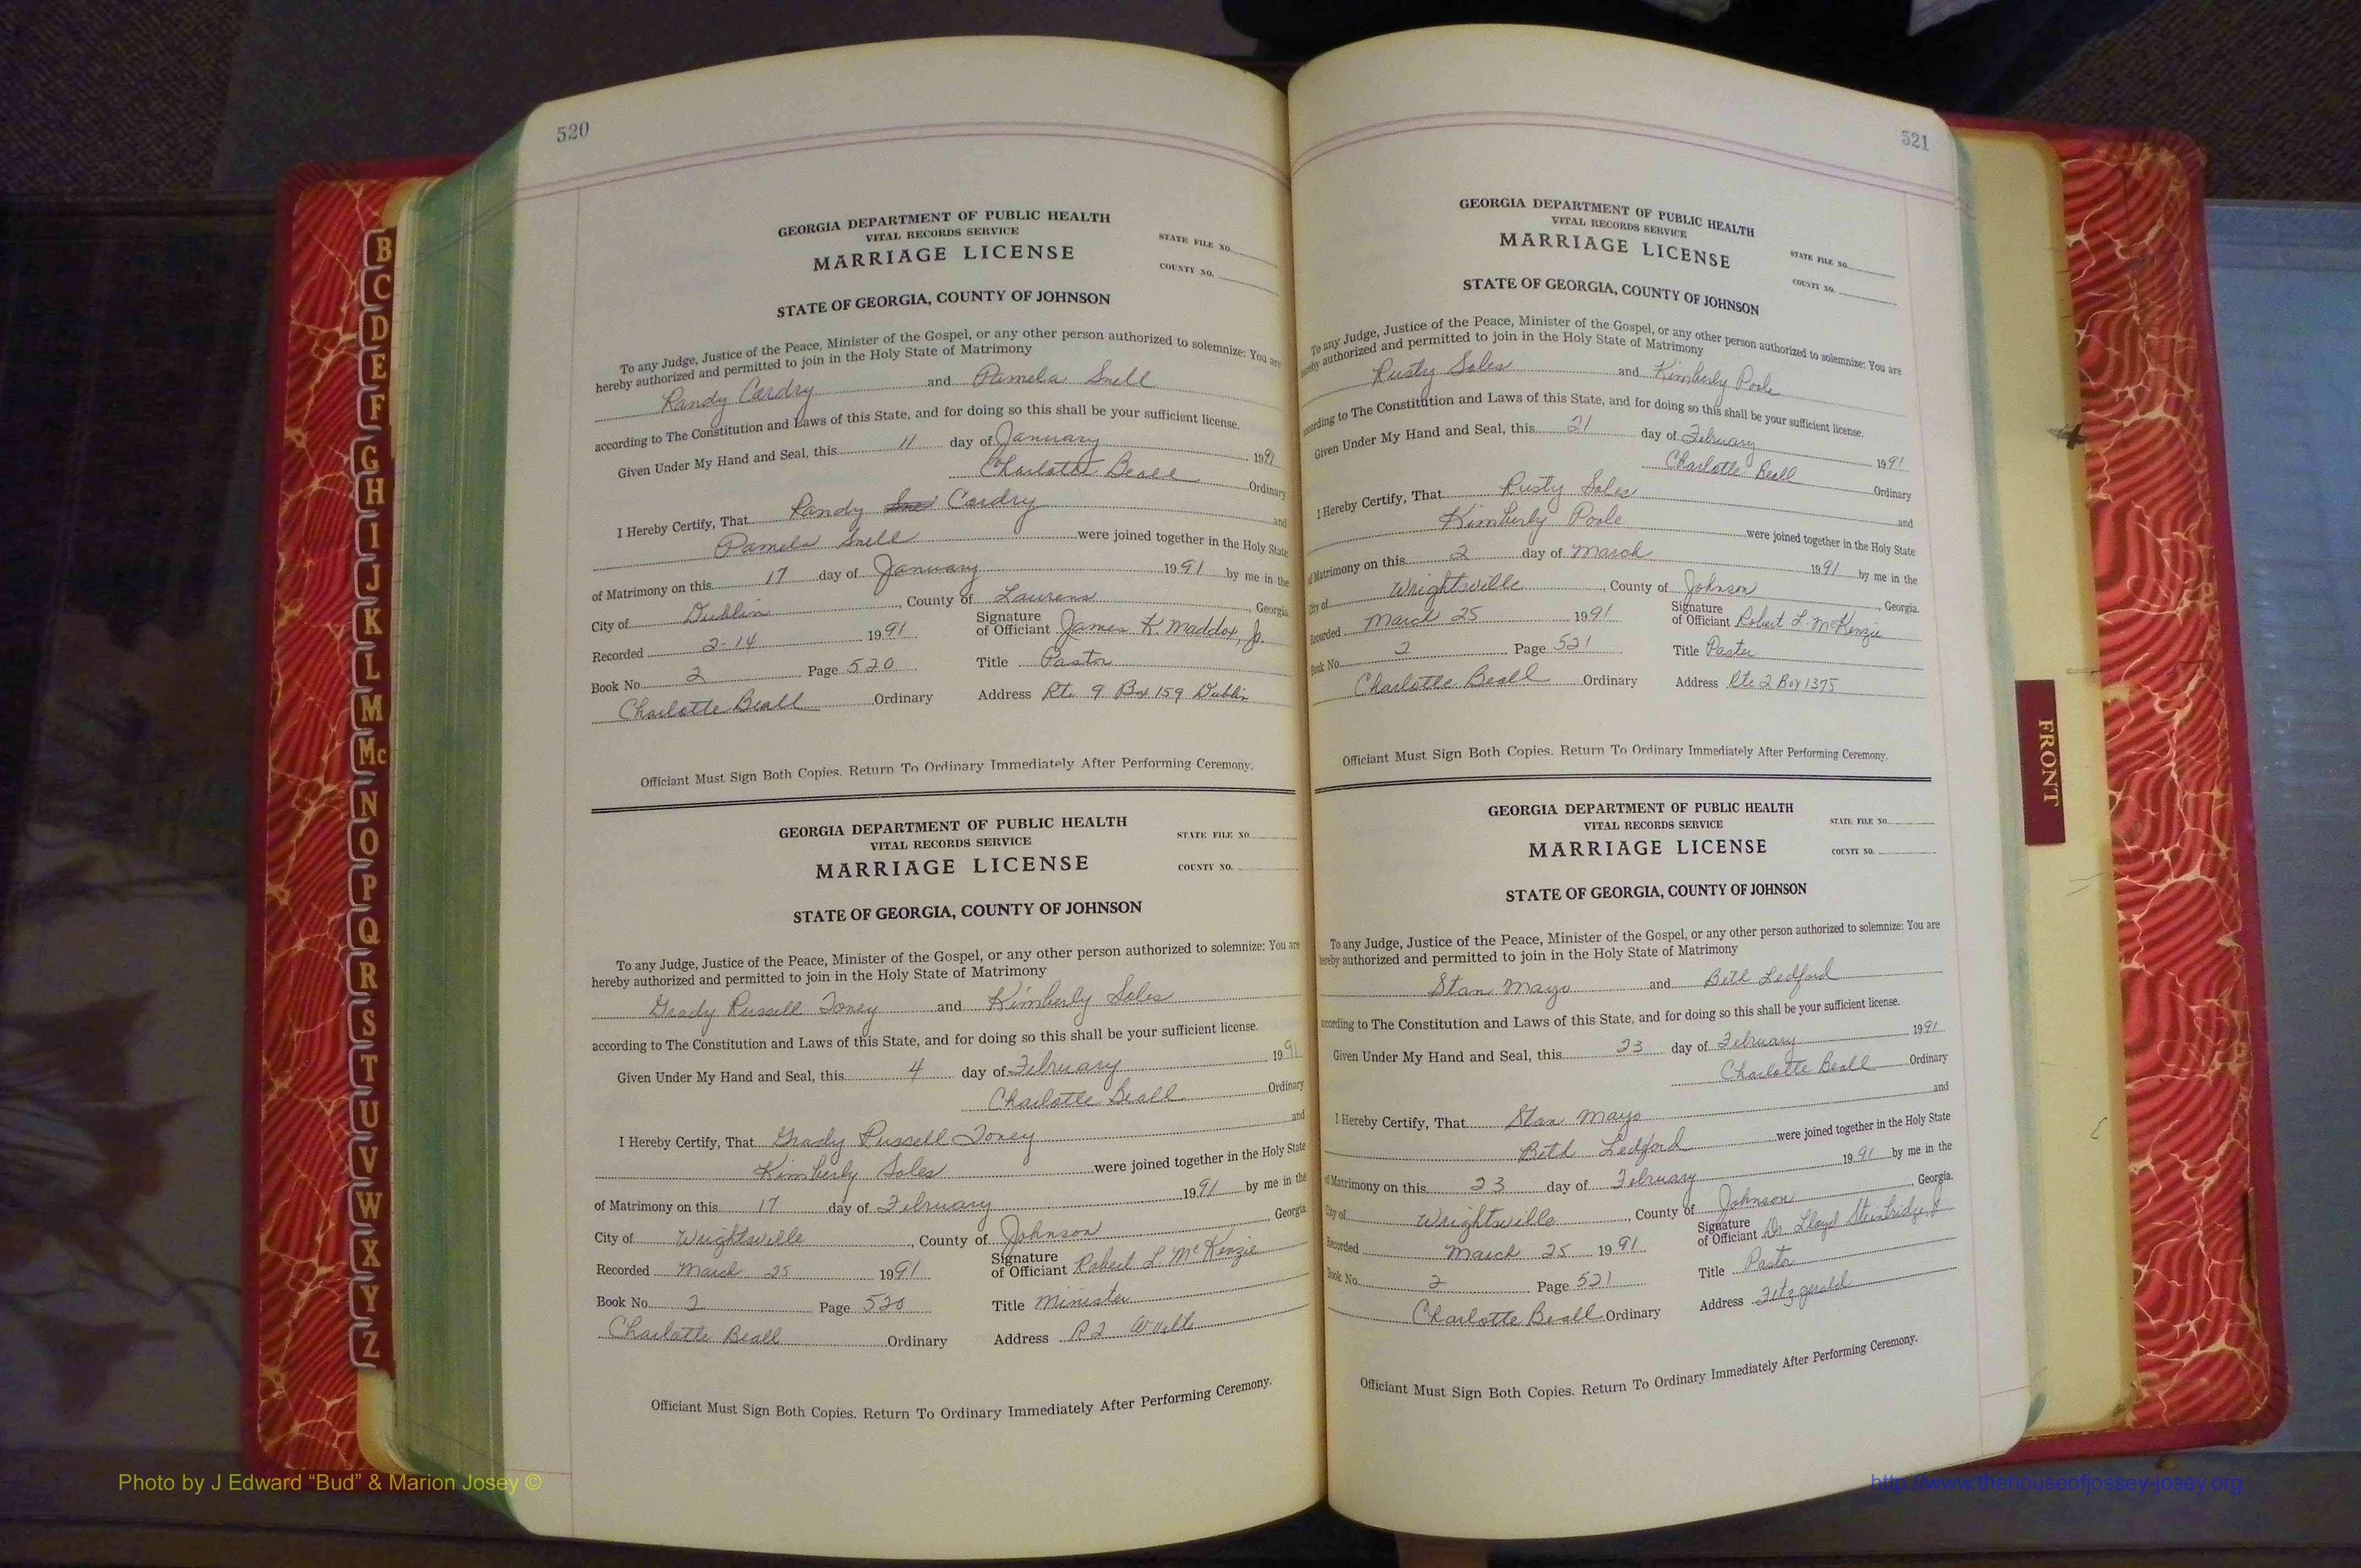 520
GEORGIA DEPARTMENT OF PUBLIC HEALTH
VITAL RECORDS SERVICE
MARRIAGE LICENSE
STATE FILE NO.
COUNTY NO.
STATE OF GEORGIA, COUNTY OF JOHNSON
To any Judge, Justice of the Peace, Minister of the Gospel, or any other person authorized to solemnize: You are
hereby authorized and permitted to join in the Holy State of Matrimony
Randy Cordry and Pamela Snell
according to The Constitution and Laws of this State, and for doing so this shall be your sufficient license.
Given Under My Hand and Seal, this 11 day of January 1991
Charlotte Beall Ordinary
I Hereby Certify, That Randy Cordry and
Pamela Snell were joined together in the Holy State
of Matrimony on this 17 day of January 1991 by me in the
City of Dublin, County of Laurens, Georgia.
Recorded 2-14 1991 Signature of Officiant James K. Maddox, Jr.
Book No. 2 Page 520 Title Pastor
Charlotte Beall Ordinary Address Rte 9 Box 159 Dublin
Officiant Must Sign Both Copies. Return To Ordinary Immediately After Performing Ceremony.
GEORGIA DEPARTMENT OF PUBLIC HEALTH
VITAL RECORDS SERVICE
MARRIAGE LICENSE
STATE FILE NO.
COUNTY NO.
STATE OF GEORGIA, COUNTY OF JOHNSON
To any Judge, Justice of the Peace, Minister of the Gospel, or any other person authorized to solemnize: You are
hereby authorized and permitted to join in the Holy State of Matrimony
Grady Russell Toney and Kimberly Soles
according to The Constitution and Laws of this State, and for doing so this shall be your sufficient license.
Given Under My Hand and Seal, this 4 day of February 1991
Charlotte Beall Ordinary
I Hereby Certify, That Grady Russell Toney and
Kimberly Soles were joined together in the Holy State
of Matrimony on this 17 day of February 1991 by me in the
City of Wrightsville, County of Johnson, Georgia.
Recorded March 25 1991 Signature of Officiant Robert L. McKenzie
Book No. 2 Page 520 Title Minister
Charlotte Beall Ordinary Address R2 W'ville
Officiant Must Sign Both Copies. Return To Ordinary Immediately After Performing Ceremony.
521
GEORGIA DEPARTMENT OF PUBLIC HEALTH
VITAL RECORDS SERVICE
MARRIAGE LICENSE
STATE FILE NO.
COUNTY NO.
STATE OF GEORGIA, COUNTY OF JOHNSON
To any Judge, Justice of the Peace, Minister of the Gospel, or any other person authorized to solemnize: You are
hereby authorized and permitted to join in the Holy State of Matrimony
Rusty Soles and Kimberly Poole
according to The Constitution and Laws of this State, and for doing so this shall be your sufficient license.
Given Under My Hand and Seal, this 21 day of February 1991
Charlotte Beall Ordinary
I Hereby Certify, That Rusty Soles and
Kimberly Poole were joined together in the Holy State
of Matrimony on this 2 day of March 1991 by me in the
City of Wrightsville, County of Johnson, Georgia.
Recorded March 25 1991 Signature of Officiant Robert L. McKenzie
Book No. 2 Page 521 Title Pastor
Charlotte Beall Ordinary Address Rte 2 Box 1375
Officiant Must Sign Both Copies. Return To Ordinary Immediately After Performing Ceremony.
GEORGIA DEPARTMENT OF PUBLIC HEALTH
VITAL RECORDS SERVICE
MARRIAGE LICENSE
STATE FILE NO.
COUNTY NO.
STATE OF GEORGIA, COUNTY OF JOHNSON
To any Judge, Justice of the Peace, Minister of the Gospel, or any other person authorized to solemnize: You are
hereby authorized and permitted to join in the Holy State of Matrimony
Stan Mayo and Beth Ledford
according to The Constitution and Laws of this State, and for doing so this shall be your sufficient license.
Given Under My Hand and Seal, this 23 day of February 1991
Charlotte Beall Ordinary
I Hereby Certify, That Stan Mayo and
Beth Ledford were joined together in the Holy State
of Matrimony on this 23 day of February 1991 by me in the
City of Wrightsville, County of Johnson, Georgia.
Recorded March 25 1991 Signature of Officiant Dr. Lloyd Steinbridge
Book No. 2 Page 521 Title Pastor
Charlotte Beall Ordinary Address Fitzgerald
Officiant Must Sign Both Copies. Return To Ordinary Immediately After Performing Ceremony.
B
C
D
E
F
G
H
I
J
K
L
M
Mc
N
O
P
Q
R
S
T
U
V
W
X
Y
Z
FRONT
Photo by J Edward “Bud” & Marion Josey ©
http://www.thehouseofjossey-josey.org